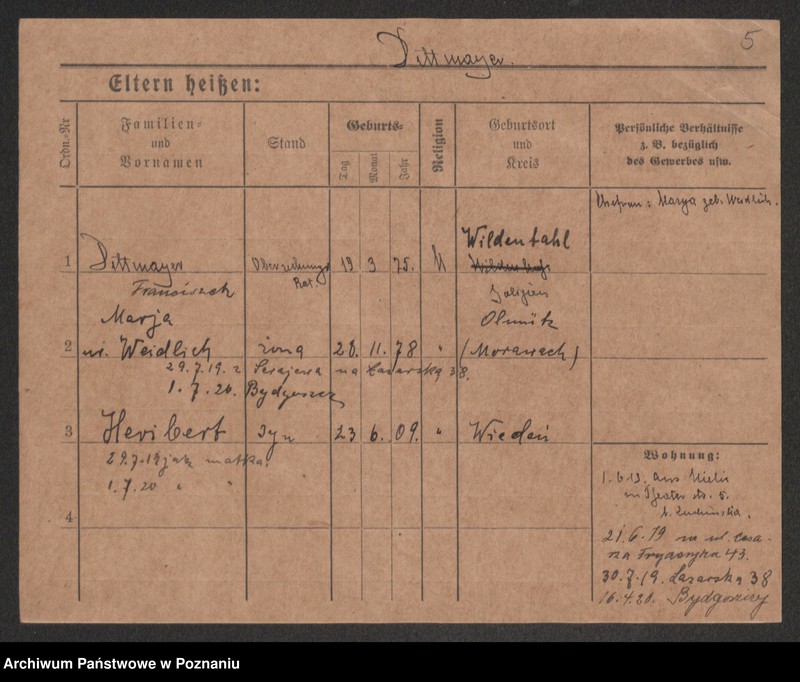 5
Dittmayer.
Eltern heißen:
Ordn.=Nr
Familien=
und
Vornamen
Stand
Geburts=
Tag
Monat
Jahr
Religion
Geburtsort
und
Kreis
Persönliche Verhältnisse
z. B. bezüglich
des Gewerbes usw.
Ehefrau: Marya geb. Weidlich.
Wildenthal
1 Dittmayer 19 3 75.
Franciszek Rat. Galizien
Marja Olmütz
2 Weidlich żona 28. 11. 78 "
29.7.19. z Serajewa na Łazarską 38.
1. 7. 20. Bydgoszcz
3 Heribert syn 23 6. 09. " Wiedeń
29.7.19 jak matka.
1.7.20 " "
4
Wohnung:
1.6.19. aus
5.
21.6.19 na ul.
43.
30.7.19. Łazarska 38
16.4.20. Bydgoszcz
Archiwum Państwowe w Poznaniu